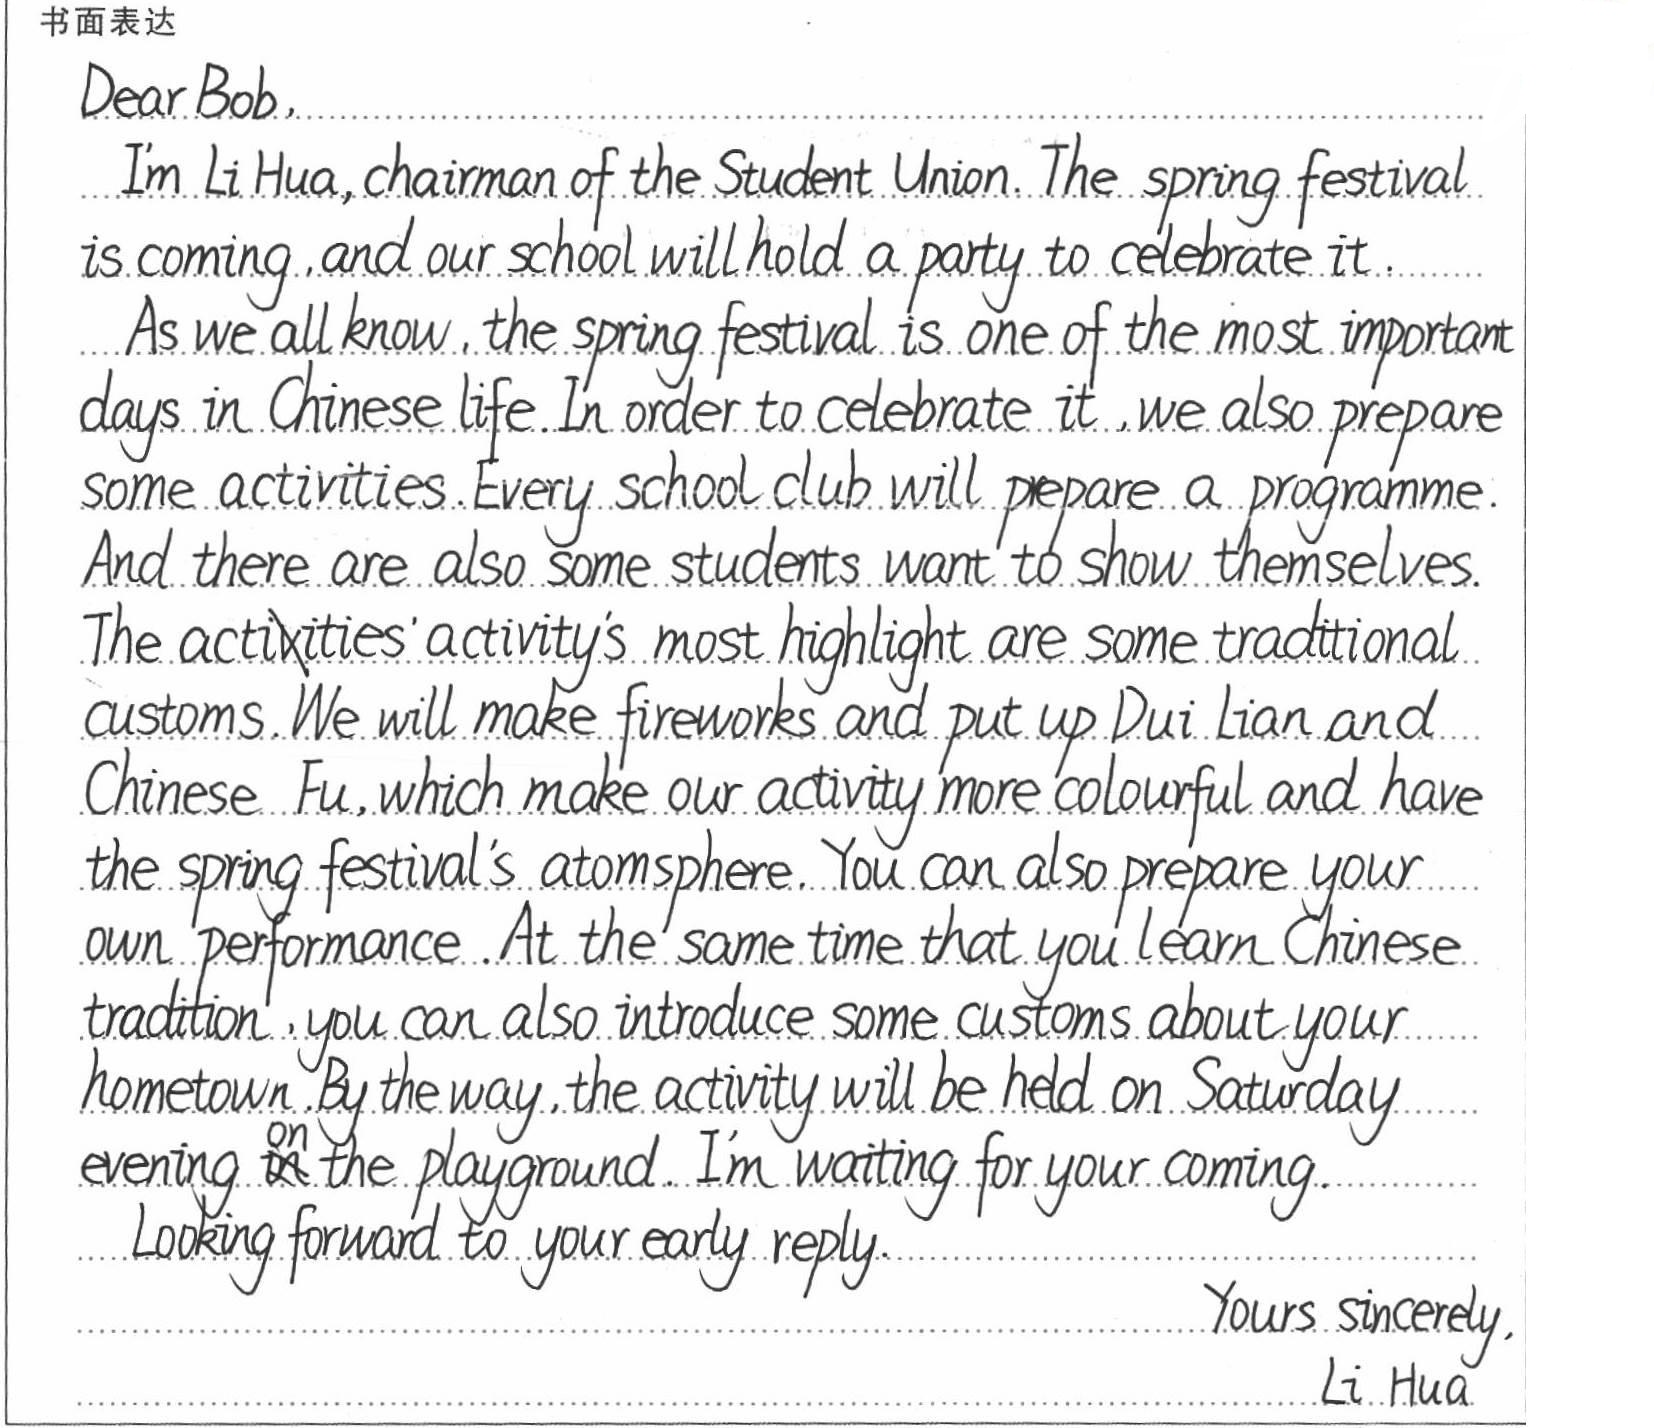 书面表达
Dear Bob,
I'm Li Hua, chairman of the Student Union. The spring festival
is coming, and our school will hold a party to celebrate it.
As we all know, the spring festival is one of the most important
days in Chinese life. In order to celebrate it, we also prepare
some activities. Every school club will prepare a programme.
And there are also some students want to show themselves.
The activities' activity's most highlight are some traditional
customs. We will make fireworks and put up Dui Lian and
Chinese Fu, which make our activity more colourful and have
the spring festival's atomsphere. You can also prepare your
own performance. At the same time that you learn Chinese
tradition, you can also introduce some customs about your
hometown. By the way, the activity will be held on Saturday
evening on the playground. I'm waiting for your coming.
Looking forward to your early reply.
Yours sincerely,
Li Hua